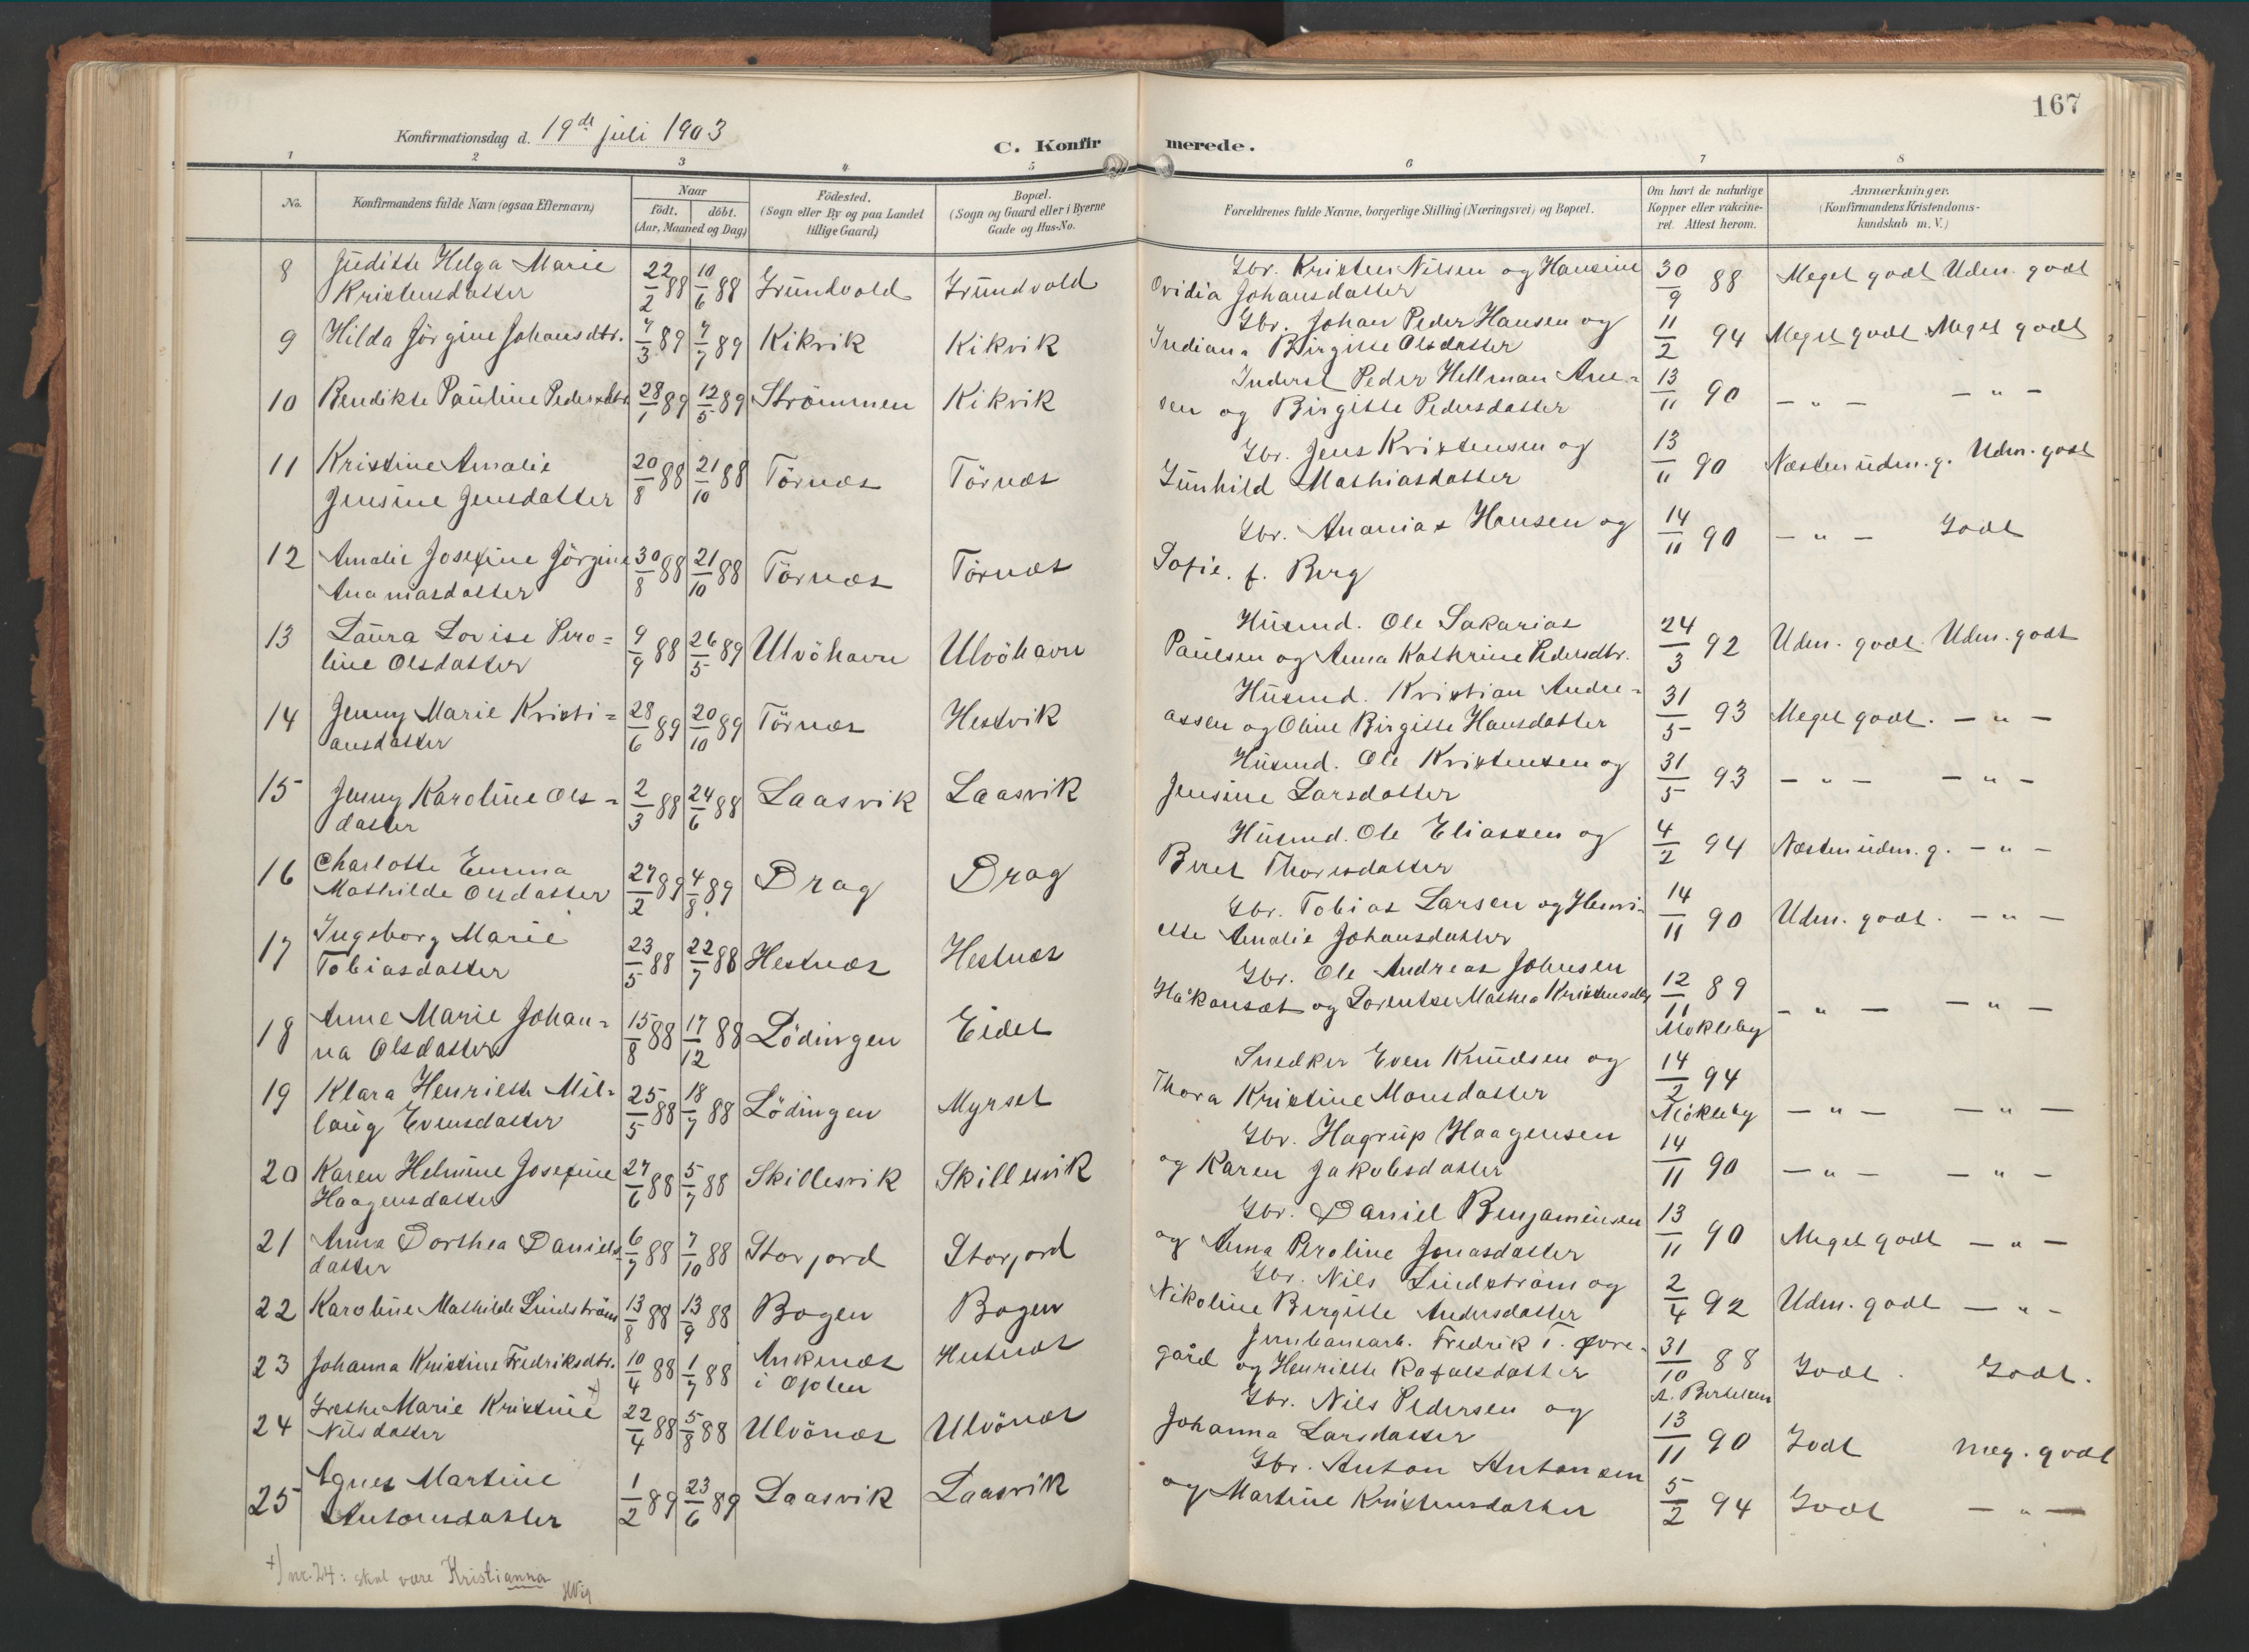 167
Konfirmationsdag d. 19de juli 1903
C. Konfirmerede.
1 2 3 4 5 6 7 8
No.
Konfirmandens fulde Navn (ogsaa Efternavn)
Naar
födt. döbt.
(Aar, Maaned og Dag)
Födested.
(Sogn eller By og paa Landet
tillige Gaard)
Bopæl.
(Sogn og Gaard eller i Byerne
Gade og Hus-No.
Forældrenes fulde Navne, borgerlige Stilling (Næringsvei) og Bopæl.
Om havt de naturlige
Kopper eller vakcine-
ret. Attest herom.
Anmærkninger.
(Konfirmandens Kristendoms-
kundskab m. V.)
8 Juditte Helga Marie 22/2 88 10/6 88 Grundvold Grundvold Gbr. Kristen Nilsen og Hansine 30/9 88 Meget godt Udm. godt
Kristensdatter Ovidia Johansdatter
9 Hilda Jörgine Johansdtr. 7/3 89 7/7 89 Kikvik Kikvik Gbr. Johan Peder Hansen og 11/2 94 Meget godt Meget godt
Indiana Birgitte Olsdatter
10 Bendikte Pauline Pedersdtr 28/1 89 12/5 89 Strömmen Kikvik Inderst Peder Hellman Arn- 13/11 90 — " — — " —
sen og Birgitte Pedersdatter
11 Kristine Amalie 20/8 88 21/10 88 Törnæs Törnæs Gbr. Jens Kristensen og 13/11 90 Næsten udm. g. Udm. godt
Jensine Jensdatter Gunhild Mathiasdatter
12 Amalie Josefine Jörgine 30/8 88 21/10 88 Törnæs Törnæs Gbr. Ananias Hansen og 14/11 90 — " — Godt
Ananiasdatter Sofie. f. Berg
13 Laura Lovise Pero= 9/9 88 26/5 89 Ulvöhavn Ulvöhavn Husmd. Ole Sakarias 24/3 92 Udm. godt. Udm. godt
line Olsdatter Paulsen og Anna Kathrine Pedersdtr.
14 Jenny Marie Kristi= 28/6 89 20/10 89 Törnæs Hestvik Husmd. Kristian Andre= 31/5 93 Meget godt. — " —
ansdatter assen og Oline Birgitte Hansdatter
15 Jenny Karoline Ols= 2/3 88 24/6 88 Laasvik Laasvik Husmd. Ole Kristensen og 31/5 93 — " — — " —
datter Jensine Larsdatter
16 Charlotte Emma 27/2 89 4/8 89 Drag Drag Husmd. Ole Eliassen og 4/2 94 Næsten udm. g. — " —
Mathilde Olsdatter Beret Thorisdatter
17 Ingeborg Marie 23/5 88 22/7 88 Hestnæs Hestnæs Gbr. Tobias Larsen og Henri- 14/11 90 Udm. godt. — " —
Tobiasdatter ette Amalie Johansdatter
18 Anne Marie Johan= 15/8 88 17/12 88 Lödingen Eidet Gbr. Ole Andreas Johnsen 12/11 89 — " — — " —
na Olsdatter Håkonsæt og Lorentse Mathea Kristensdtr Mökleby
19 Klara Henriette Mil- 25/5 88 18/7 88 Lödingen Myrset Snedker Even Knudsen og 14/2 94 — " — — " —
laug Evensdatter Thora Kristine Monsdatter Mökleby
20 Karen Helmine Josefine 27/6 88 5/7 88 Skillesvik Skillesvik Gbr. Hagrup Haagensen 14/11 90 — " — — " —
Haagensdatter og Karen Jakobsdatter
21 Anna Dorthea Daniels- 6/7 88 7/10 88 Storjord Storjord Gbr. Daniel Benjaminsen 13/11 90 Meget godt — " —
datter og Anna Peroline Jonasdatter
22 Karoline Mathilde Lindström 13/8 88 13/9 88 Bogen Bogen Gbr. Nils Lindström og 2/4 92 Udm. godt — " —
Nikoline Bergitte Andersdatter
23 Johanna Kristine Fredriksdtr. 10/4 88 1/7 88 Ankenæs Hestnæs Jernbanearb. Fredrik T. Øvre- 31/10 88 Godt. Godt.
i Ofoten gård og Henriette Rafaelsdatter A. Bertelsen
24 Grethe Marie Kristine +) 22/4 88 5/8 88 Ulvönæs Ulvönæs Gbr. Nils Pedersen og 13/11 90 Godt meg. godt
Nilsdatter Johanna Larsdatter
25 Agnes Martine 1/2 89 23/6 89 Laasvik Laasvik Gbr. Anton Antonsen 5/2 94 Godt — " —
Antonsdatter og Martine Kristensdatter
+) nr. 24: skal være Kristianna